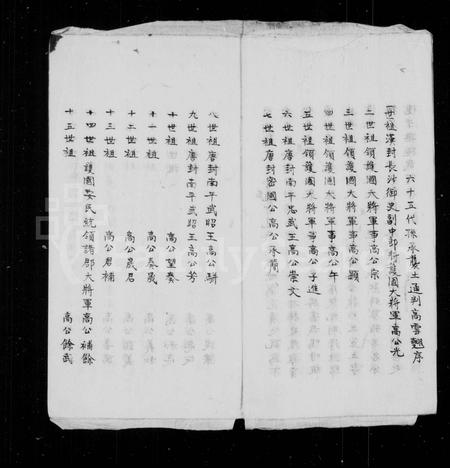 六十五代孫承襲土通判高雪翹序
一世祖漢封長沙御史副中郎將護國大將軍高公光
二世祖領護國大將軍軍事高公宗
三世祖領護國大將軍軍事高公顥
四世祖領護國大將軍軍事高公午
五世祖領護國大將軍軍事高公子進
六世祖唐封南平忠武王高公崇文
七世祖唐封密國公高公承簡
八世祖唐封南平武昭王高公駢
九世祖唐封南平武昭王高公芳
十世祖 高公望奏
十一世祖 高公泰晟
十二世祖 高公晟君
十三世祖 高公君補
十四世祖護國安民統領諸郡大將軍高公補餘
十五世祖 高公餘武